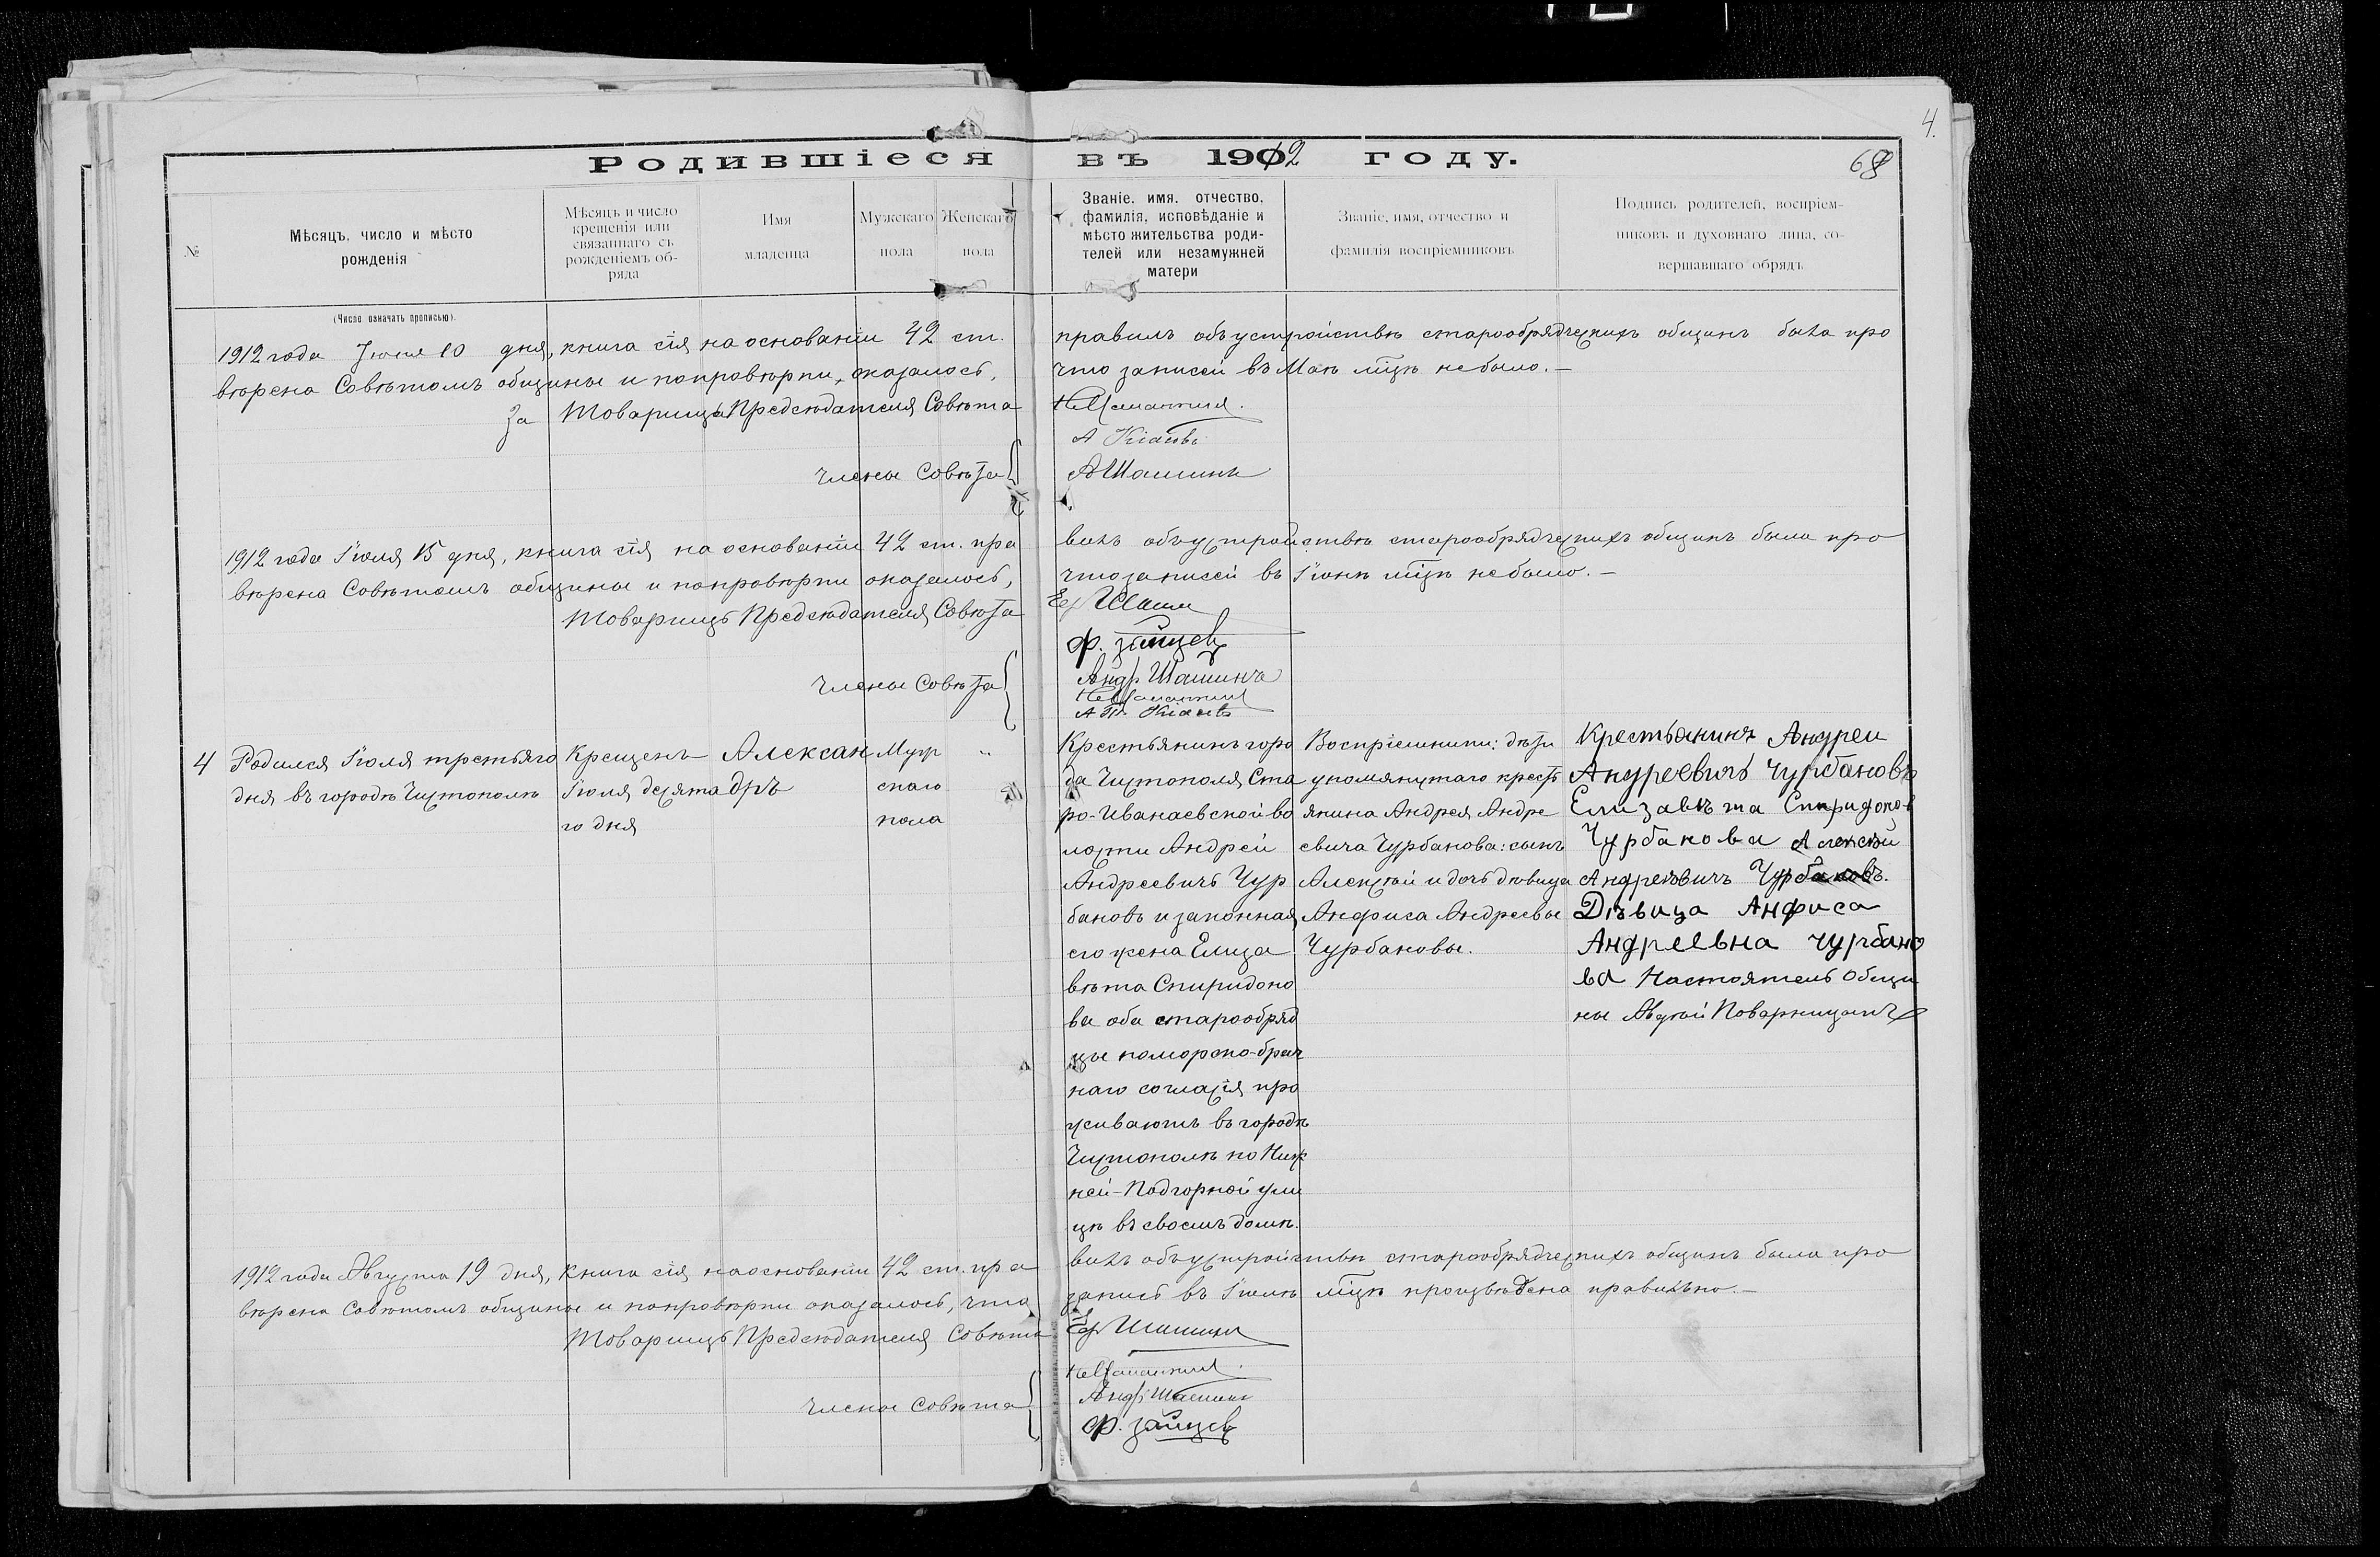 4.
Родившіеся въ 1912 году.
68
№
Мѣсяцъ, число и мѣсто
рожденія
Мѣсяцъ и число
крещенія или
связаннаго съ
рожденіемъ об-
ряда
Имя
младенца
Мужскаго
пола
Женскаго
пола
Званіе, имя, отчество,
фамилія, исповѣданіе и
мѣсто жительства роди-
телей или незамужней
матери
Званіе, имя, отчество и
фамилія воспріемниковъ
Подпись родителей, воспріем-
никовъ и духовнаго лица, со-
вершавшаго обрядъ
(Число означать прописью).
1912 года Іюня 10 дня, книга сія на основаніи 42 ст. правилъ объ устройствѣ старообрядческихъ общинъ была про
вѣрена Совѣтомъ общины и по провѣрки, оказалось, что записей въ Маѣ мѣцѣ не было.—
За Товарища Предсѣдателя Совѣта
Члены Совѣта
А Шашинъ
1912 года Іюля 15 дня, книга сія на основаніи 42 ст. пра вилъ объ устройствѣ старообрядческихъ общинъ была про
вѣрена Совѣтомъ общины и по провѣрки оказалось, что записей въ Іюнѣ мѣцѣ не было.—
Товарищъ Предсѣдателя Совѣта
Ф. Зайцев
Члены Совѣта
Андр Шашинъ
4
Родился Іюля третьяго
дня въ городѣ Чистополѣ
Крещенъ
Іюля десята
го дня
Алексан
дръ
Муж
скаго
пола
"
Крестьянинъ горо
да Чистополя Ста
ро-Иванаевской во
лости Андрей
Андреевичъ Чур
бановъ и законная
его жена Елиза
вѣта Спиридоно
ва оба старообряд
цы поморско-брач
наго согласія про
живаютъ въ городѣ
Чистополѣ по Ниж
ней-Подгорной ули
цѣ въ своемъ домѣ.
Воспріемники: дѣти
упомянутаго кресть
янина Андрея Андре
евича Чурбанова: сынъ
Алексѣй и дочь дѣвица
Анфиса Андреевы
Чурбановы.
Крестьянинъ Андреи
Андреевичъ Чурбановъ
Елизавѣта Спиридонов
Чурбанова Алексѣй
Андреѣвичъ Чурбановъ.
Дѣвица Анфиса
Андреевна чурбано
ва Настоятель Общи
ны Авдѣй Поварницынъ
1912 года Августа 19 дня, книга сія на основаніи 42 ст. пра вилъ объ устройствѣ старообрядческихъ общинъ была про
вѣрена Совѣтомъ общины и по провѣрки оказалось, что запись въ Іюлѣ мѣцѣ произвѣдена правильно.—
Товарищъ Предсѣдателя Совѣта
Еф Шашинъ
Члены Совѣта
Андр Шашинъ
Ф. Зайцев